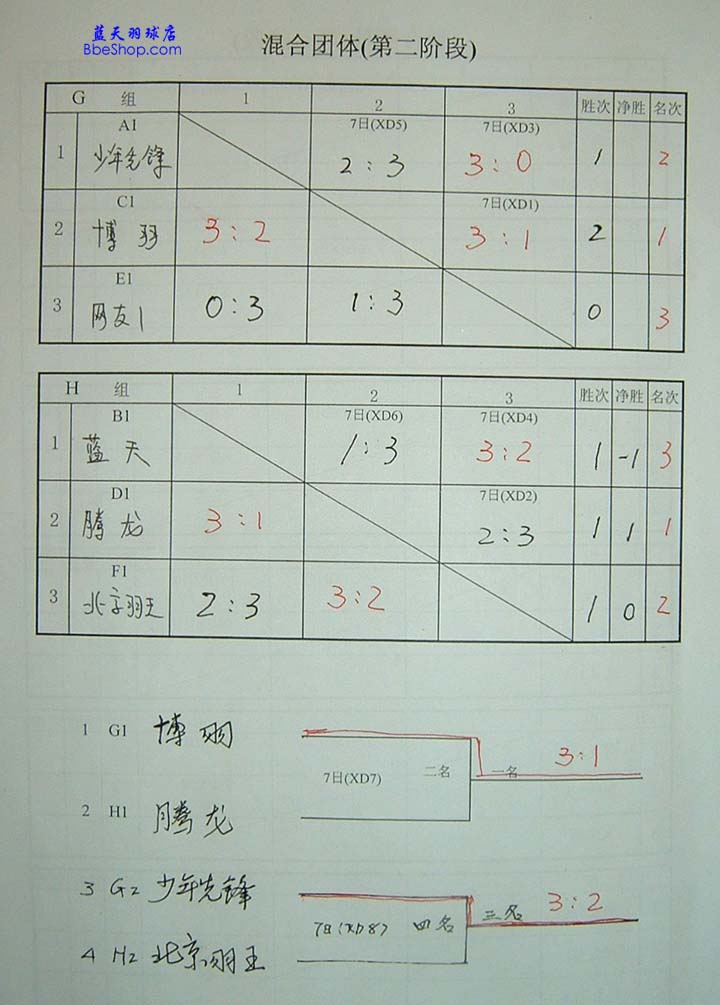 蓝天羽球店
BbeShop.com
混合团体(第二阶段)
G 组 1 2 3 胜次 净胜 名次
A1 7日(XD5) 7日(XD3)
1 少年先锋 2:3 3:0 1 2
C1 7日(XD1)
2 博羽 3:2 3:1 2 1
E1
3 网友1 0:3 1:3 0 3
H 组 1 2 3 胜次 净胜 名次
B1 7日(XD6) 7日(XD4)
1 蓝天 1:3 3:2 1 -1 3
D1 7日(XD2)
2 腾龙 3:1 2:3 1 1 1
F1
3 北京羽王 2:3 3:2 1 0 2
1 G1 博羽 3:1
7日(XD7) 二名 一名
2 H1 腾龙
3 G2 少年先锋 3:2
7日(XD8) 四名 三名
4 H2 北京羽王